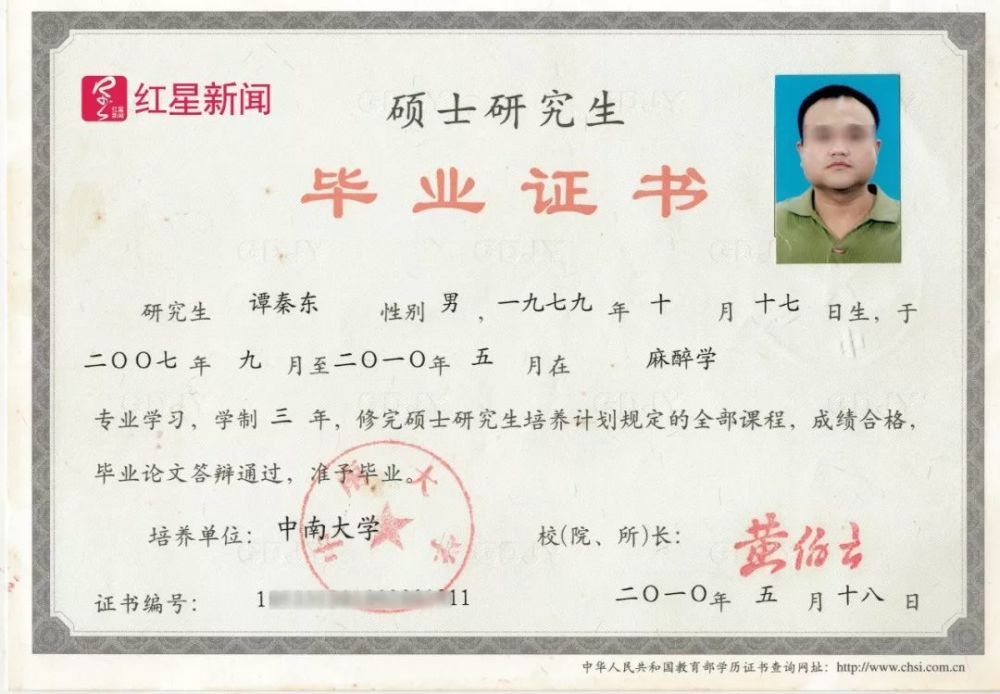 红星新闻
硕士研究生
毕业证书
研究生 谭秦东 性别 男，一九七九 年 十 月 十七 日生，于
二〇〇七 年 九 月至二〇一〇年 五 月在 麻醉学
专业学习，学制 三 年，修完硕士研究生培养计划规定的全部课程，成绩合格，
毕业论文答辩通过，准予毕业。
培养单位：中南大学 校(院、所)长：黄伯云
证书编号： 1 11 二〇一〇年 五 月十八 日
中华人民共和国教育部学历证书查询网址：http://www.chsi.com.cn